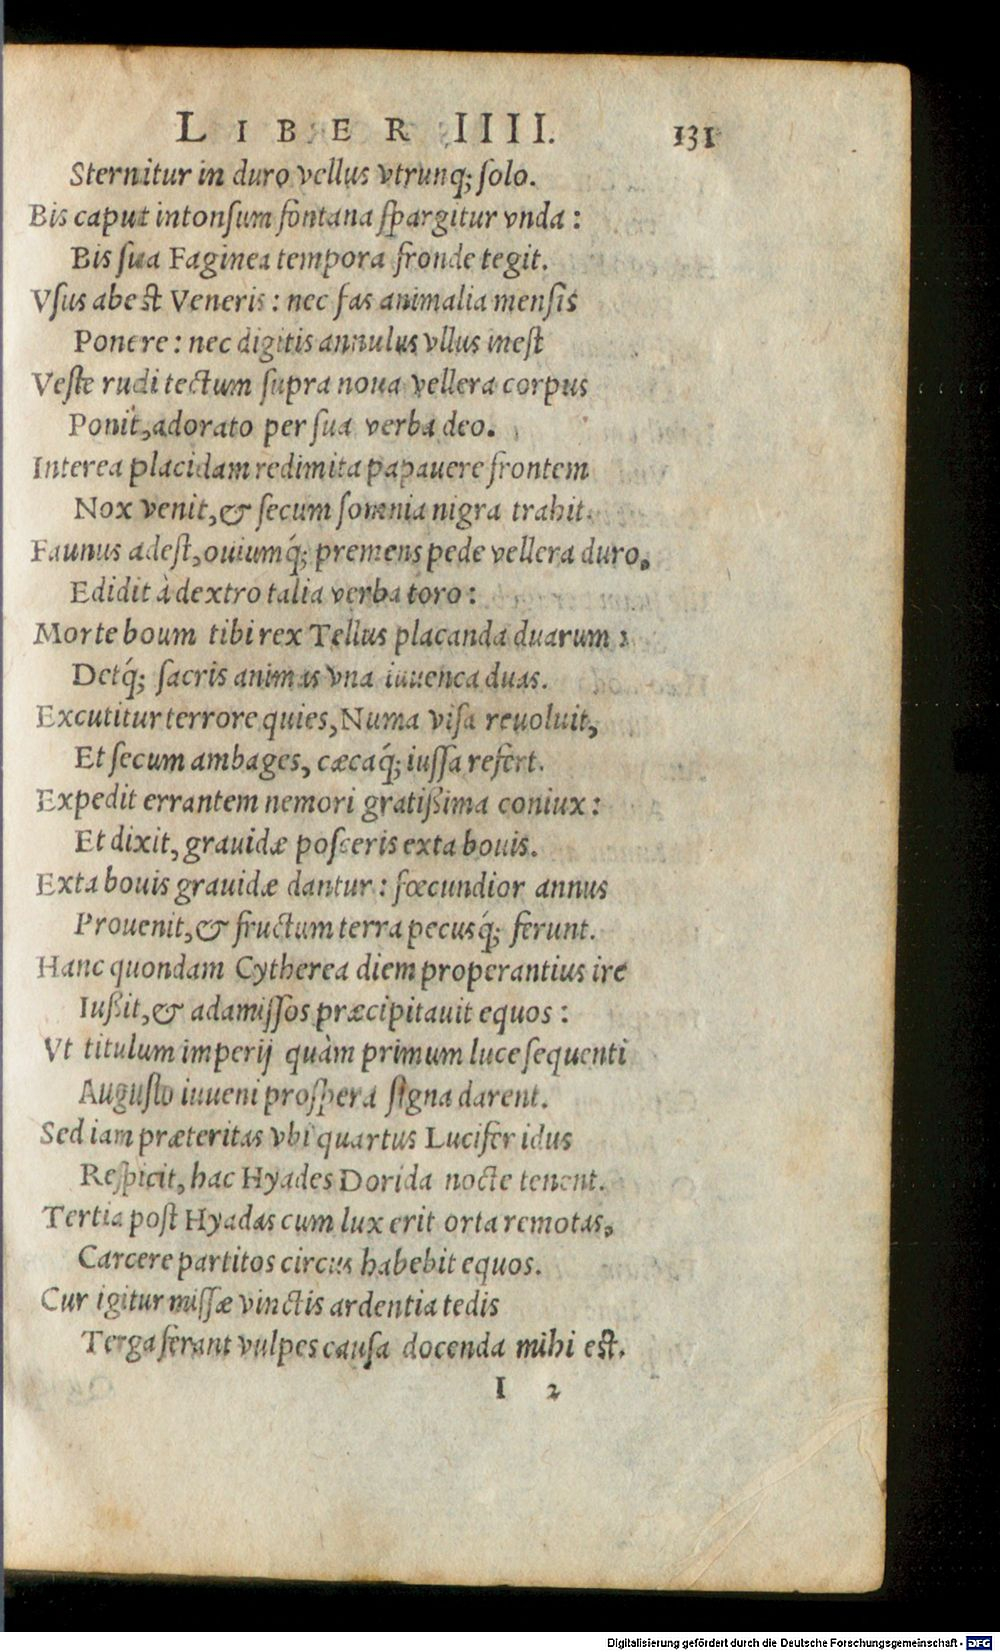 LIBER IIII. 131
Sternitur in duro vellus vtrunq; solo.
Bis caput intonsum fontana spargitur vnda:
Bis sua Faginea tempora fronde tegit.
Vsus abest Veneris: nec fas animalia mensis
Ponere: nec digitis annulus vllus inest
Veste rudi tectum supra noua vellera corpus
Ponit, adorato per sua verba deo.
Interea placidam redimita papauere frontem
Nox venit, & secum somnia nigra trahit.
Faunus adest, ouiumq́; premens pede vellera duro,
Edidit à dextro talia verba toro:
Morte boum tibi rex Tellus placanda duarum:
Detq́; sacris animas vna iuuenca duas.
Excutitur terrore quies, Numa visa reuoluit,
Et secum ambages, cæcaq́; iussa refert.
Expedit errantem nemori gratißima coniux:
Et dixit, grauidæ posceris exta bouis.
Exta bouis grauidæ dantur: fœcundior annus
Prouenit, & fructum terra pecusq́; ferunt.
Hanc quondam Cytherea diem properantius ire
Iußit, & adamissos præcipitauit equos:
Vt titulum imperij quàm primum luce sequenti
Augusto iuueni prospera signa darent.
Sed iam præteritas vbi quartus Lucifer idus
Respicit, hac Hyades Dorida nocte tenent.
Tertia post Hyadas cum lux erit orta remotas,
Carcere partitos circus habebit equos.
Cur igitur missæ vinctis ardentia tedis
Terga ferant vulpes causa docenda mihi est.
I 2
Digitalisierung gefördert durch die Deutsche Forschungsgemeinschaft - DFG